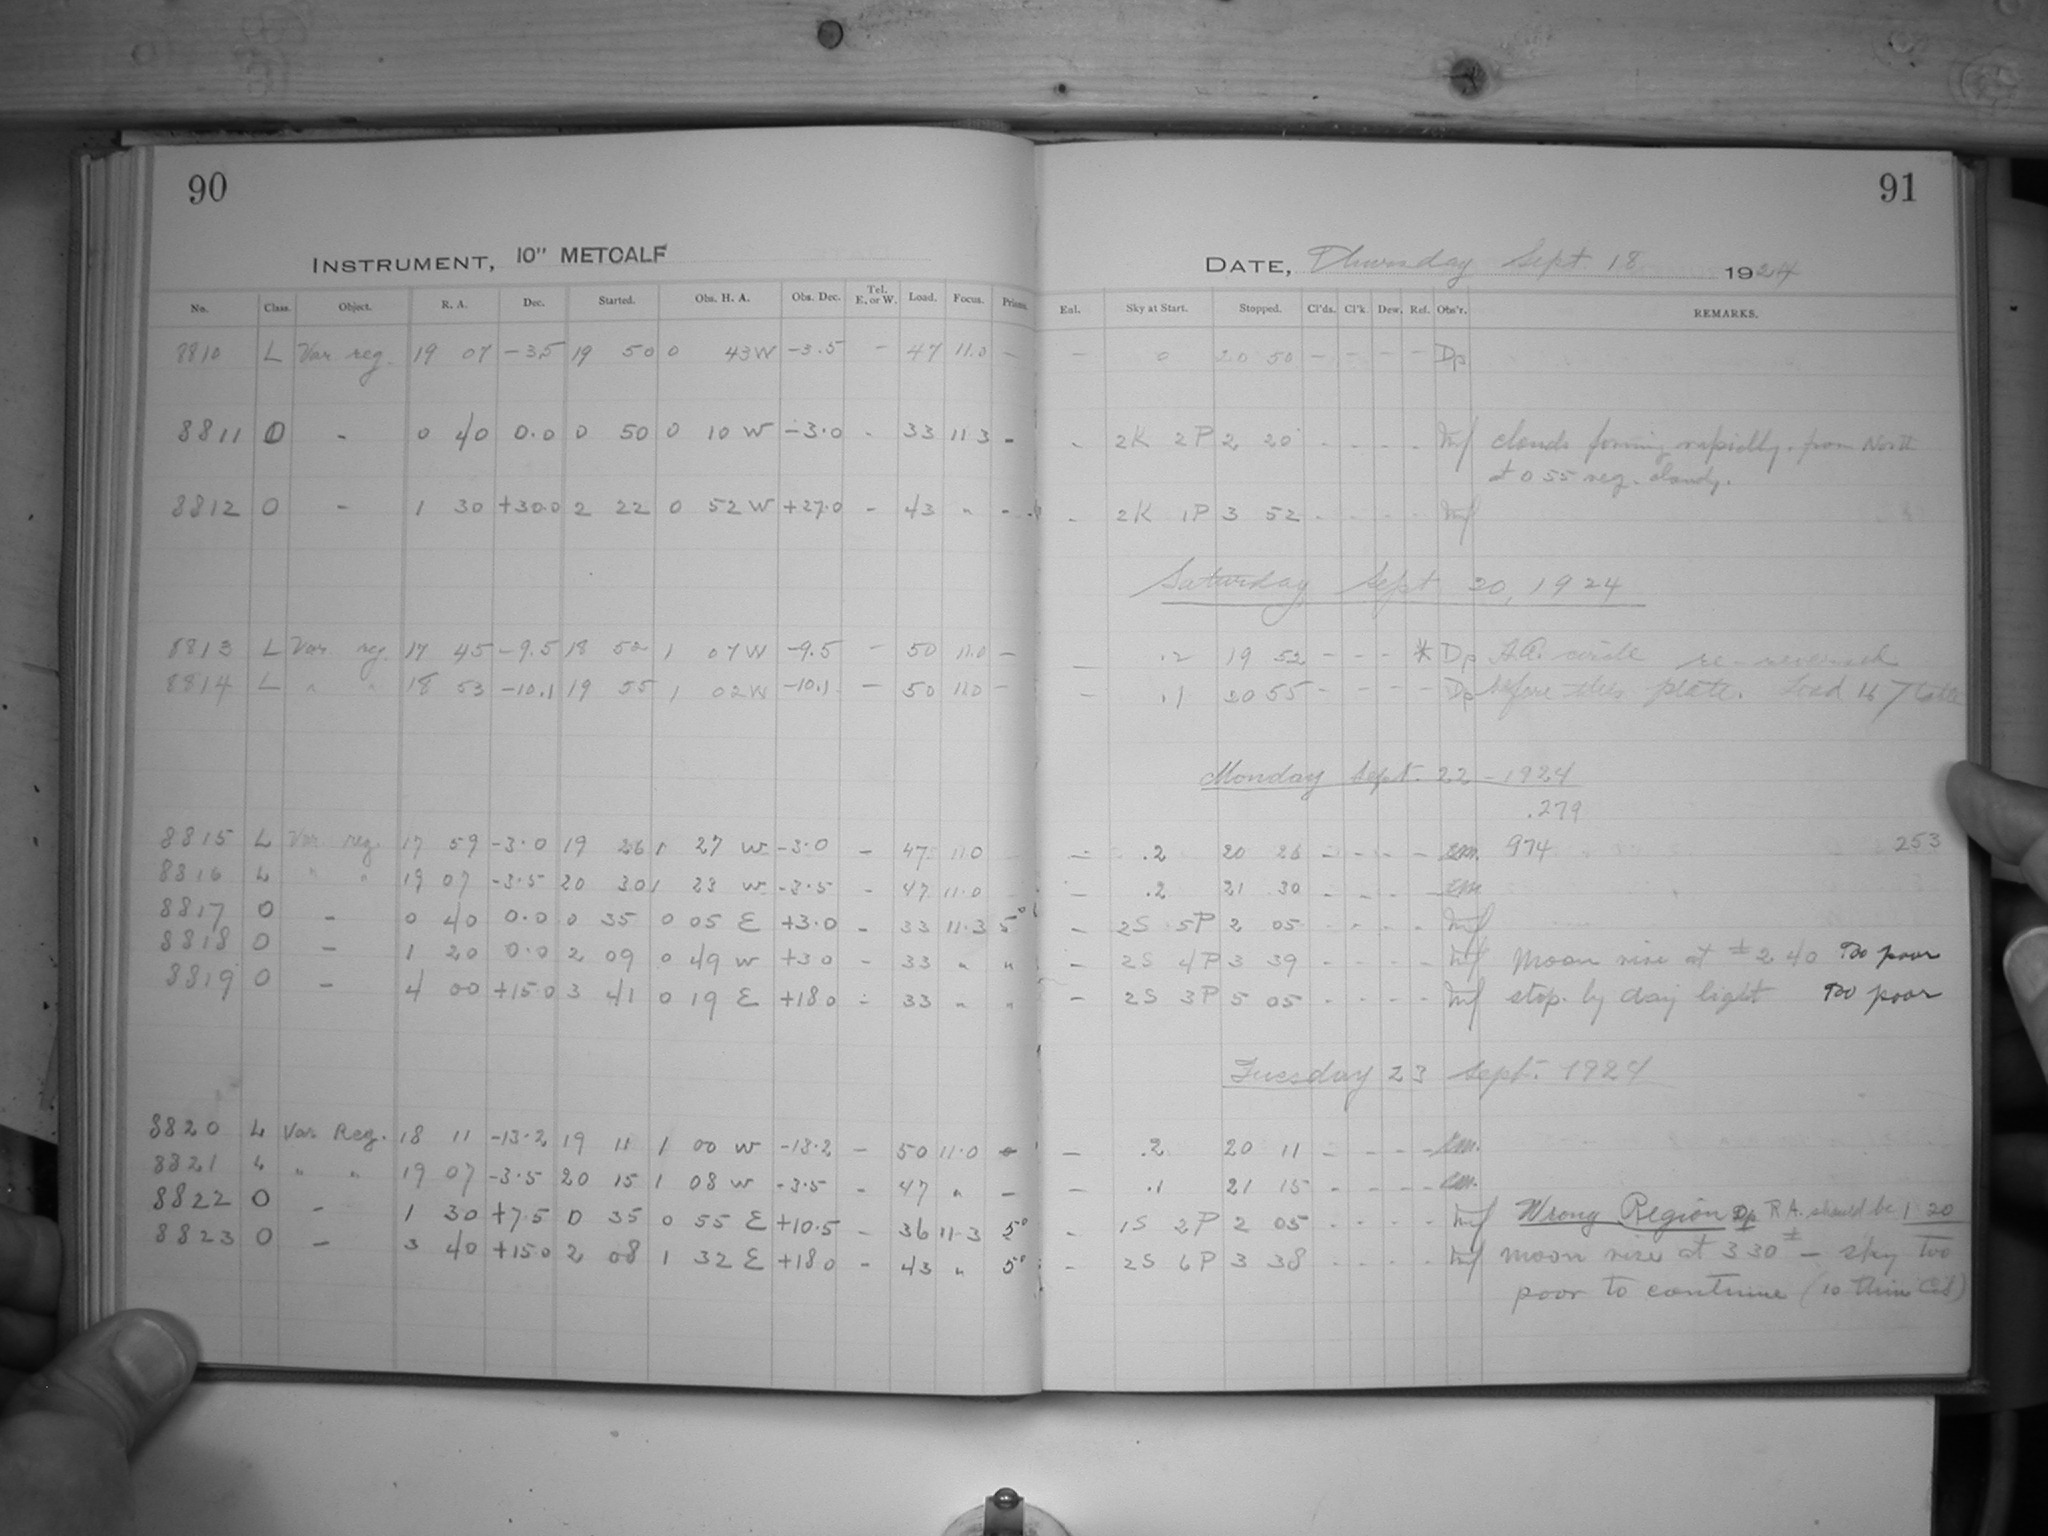 90
91
INSTRUMENT, 10" METCALF
DATE, Thursday Sept 18 1924
No. Class. Object. R. A. Dec. Started. Obs. H. A. Obs. Dec. Tel. E. or W. Load. Focus. Prisms. Enl. Sky at Start. Stopped. Cl'ds. Cl'k. Dew. Ref. Obs'r. REMARKS.
8810 L Var reg. 19 07 -3.5 19 50 0 43 W -3.5 - 47 11.0 - - 0 20 50 - - - - Dp
8811 O - 0 40 0.0 0 50 0 10 W -3.0 - 33 11.3 - - 2K 2P 2 20 - - - - Mf clouds forming rapidly. from North
at 0 55 reg. cloudy.
8812 O - 1 30 +30.0 2 22 0 52 W +27.0 - 43 " - - 2K 1P 3 52 - - - - Mf
Saturday Sept 20, 1924
8813 L Var. reg. 17 45 -9.5 18 52 1 07 W -9.5 - 50 11.0 - - .2 19 52 - - - * Dp H.A. circle re-reversed
8814 L " " 18 53 -10.1 19 55 1 02 W -10.1 - 50 11.0 - - .1 20 55 - - - - Dp before this plate. Load is
Monday Sept. 22 - 1924
.279
8815 L Var reg. 17 59 -3.0 19 26 1 27 W -3.0 - 47 11.0 - .2 20 26 - - - - em. 974 253
8816 L " " 19 07 -3.5 20 30 1 23 W -3.5 - 47 11.0 - .2 21 30 - - - - em
8817 O - 0 40 0.0 0 35 0 05 E +3.0 - 33 11.3 5° - 2S 5P 2 05 - - - - Mf
8818 O - 1 20 0.0 2 09 0 49 W +3.0 - 33 " " - 2S 4P 3 39 - - - - Mf Moon rise at ± 2 40 Too poor
8819 O - 4 00 +15.0 3 41 0 19 E +18.0 - 33 " " - 2S 3P 5 05 - - - - Mf stop. by day light Too poor
Tuesday 23 Sept. 1924
8820 L Var Reg. 18 11 -13.2 19 11 1 00 W -13.2 - 50 11.0 - - .2 20 11 - - - - em.
8821 L " " 19 07 -3.5 20 15 1 08 W -3.5 - 47 " - - .1 21 15 - - - - em.
8822 O - 1 30 +7.5 0 35 0 55 E +10.5 - 36 11.3 5° - 1S 2P 2 05 - - - - Mf Wrong Region Dp R.A. should be 1 20
8823 O - 3 40 +15.0 2 08 1 32 E +18.0 - 43 " 5° - 2S 6P 3 38 - - - - Mf moon rise at 3 30 ± - sky too
poor to continue (10 thin Cds)